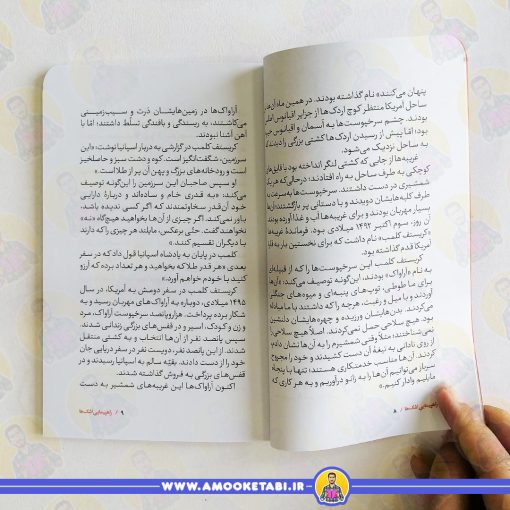 پنهان می‌کنند» نام گذاشته بودند. در همین ماه آن‌ها در
ساحل آمریکا منتظر کوچ اردک‌ها از جزایر اقیانوس اطلس
بودند. چشم سرخپوست‌ها به آسمان و اقیانوس
بود؛ امّا پیش از رسیدن اردک‌ها کشتی بزرگی را دیدند که
به ساحل نزدیک می‌شود.
غریبه‌ها از جایی که کشتی لنگر انداخته بود با قایق‌های
کوچکی به طرف ساحل به راه افتادند؛ درحالی‌که هر یک
شمشیری در دست داشتند. سرخپوست‌ها به سرعت به
طرف کلبه‌هایشان دویدند و با دستانی پر بازگشتند؛ آن‌ها
بسیار مهربان بودند و برای غریبه‌ها آب و غذا آورده بودند.
آن روز، سوم اکتبر ۱۴۹۲ میلادی بود. فرماندهٔ غریبه‌ها
«کریستف کلمب» نام داشت که برای نخستین بار به قارّهٔ
آمریکا قدم گذاشته بود.
کریستف کلمب این سرخپوست‌ها را که از قبیله‌ای
به نام «آراواک» بودند، این‌گونه توصیف می‌کند: «آن‌ها
برای ما طوطی، توپ‌های پنبه‌ای و میوه‌های جنگلی
آوردند و با میل و رغبت، هرچه را که داشتند با ما مبادله
می‌کردند. بدن‌هایشان ورزیده و چهره‌هایشان دلنشین
بود. هیچ سلاحی حمل نمی‌کردند. اصلاً هیچ سلاحی را
نمی‌شناختند؛ مثلاً وقتی شمشیرم را به آن‌ها نشان دادم،
از روی نادانی به تیغهٔ آن دست کشیدند و خود را مجروح
کردند. آن‌ها مناسب خدمتکاری هستند؛ تنها با پنجاه
سرباز می‌توانیم آن‌ها را به زانو درآوریم و به هر کاری که
مایلیم وادار کنیم.»
۸ / راهپیمایی اشک‌ها
آراواک‌ها در زمین‌هایشان ذرت و سیب‌زمینی
می‌کاشتند، به ریسندگی و بافندگی تسلّط داشتند؛ امّا با
آهن آشنا نبودند.
کریستف کلمب در گزارشی به دربار اسپانیا نوشت: «این
سرزمین، شگفت‌انگیز است. کوه و دشت سبز و حاصلخیز
است و رودخانه‌های بزرگ و پهن آن پر از طلاست.»
او سپس صاحبان این سرزمین را این‌گونه توصیف
می‌کند: «به قدری خام و ساده‌اند و دربارهٔ دارایی
خود آن‌قدر سخاوتمندند که اگر کسی ندیده باشد،
باور نمی‌کند. اگر چیزی از آن‌ها بخواهید هیچ‌گاه «نه»
نخواهند گفت. حتّی برعکس، مایلند هر چیزی را که دارند
با دیگران تقسیم کنند.»
کلمب در پایان به پادشاه اسپانیا قول داد که در سفر
بعدی «هر قدر طلا که بخواهید و هر تعداد برده که آرزو
کنید با خودم خواهم آورد.»
کریستف کلمب در سفر دومش به آمریکا، در سال
۱۴۹۵ میلادی، دوباره به آراواک‌های مهربان رسید و به
شکار برده پرداخت. هزاروپانصد سرخپوست آراواک، مرد
و زن و کودک، اسیر و در قفس‌های بزرگی زندانی شدند.
سپس پانصد نفر از آن‌ها انتخاب و به کشتی منتقل
شدند. از این پانصد نفر، دویست نفر در سفر دریایی جان
خود را از دست دادند. بقیّه سالم به اسپانیا رسیدند و در
قفس‌های بزرگی به فروش گذاشته شدند.
اکنون آراواک‌ها این غریبه‌های شمشیر به دست
۹ / راهپیمایی اشک‌ها
WWW.AMOOKETABI.IR